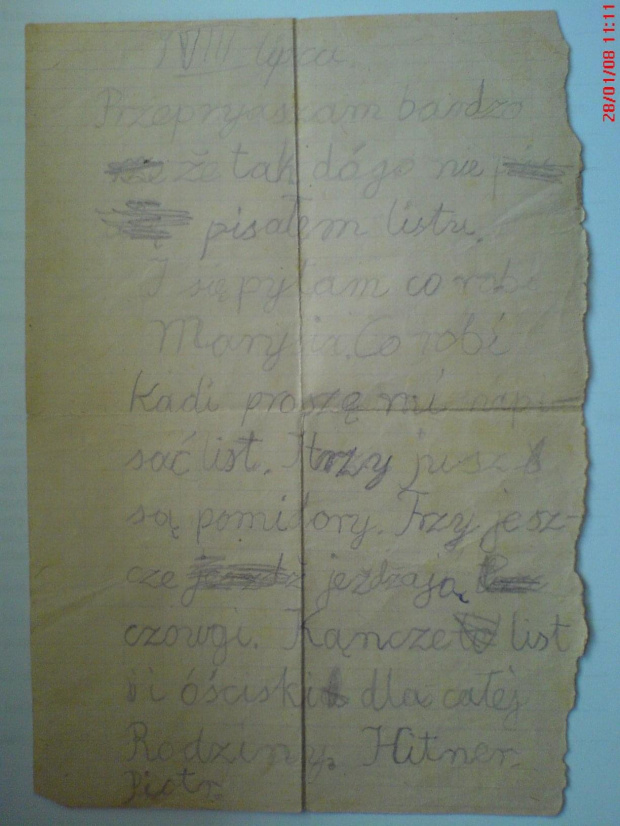 VIII lipca.
Przepryaszam bardzo
że tak dógo nie
pisałem listu.
I się pytam co robi
Marysia. Co robi
Kadi proszę mi napi-
sać list. I trzy jusz
są pomidory. Trzy jesz-
cze jeżdzają
czowgi. Kąncze list
i óściski dla całej
Rodziny. Hitner.
Piotr.
28/01/08 11:11